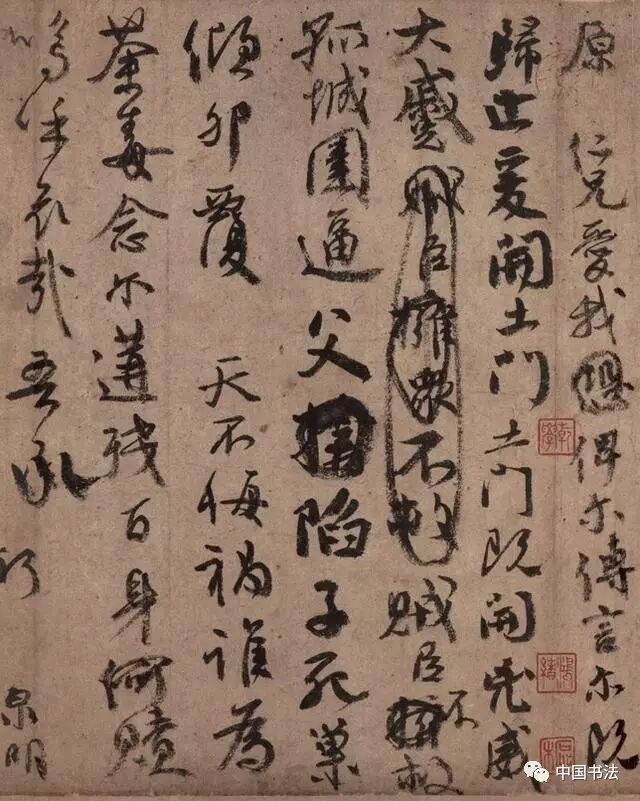 原 仁兄愛我俾尔傳言尔既
歸止爰開土門土門既開凶威
大蹙賊臣擁衆不救賊臣不救
孤城圍逼父陷子死巢
傾卵覆 天不悔禍誰為
荼毒念尔遘殘百身何贖
嗚乎哀哉吾承
泉明
中国书法